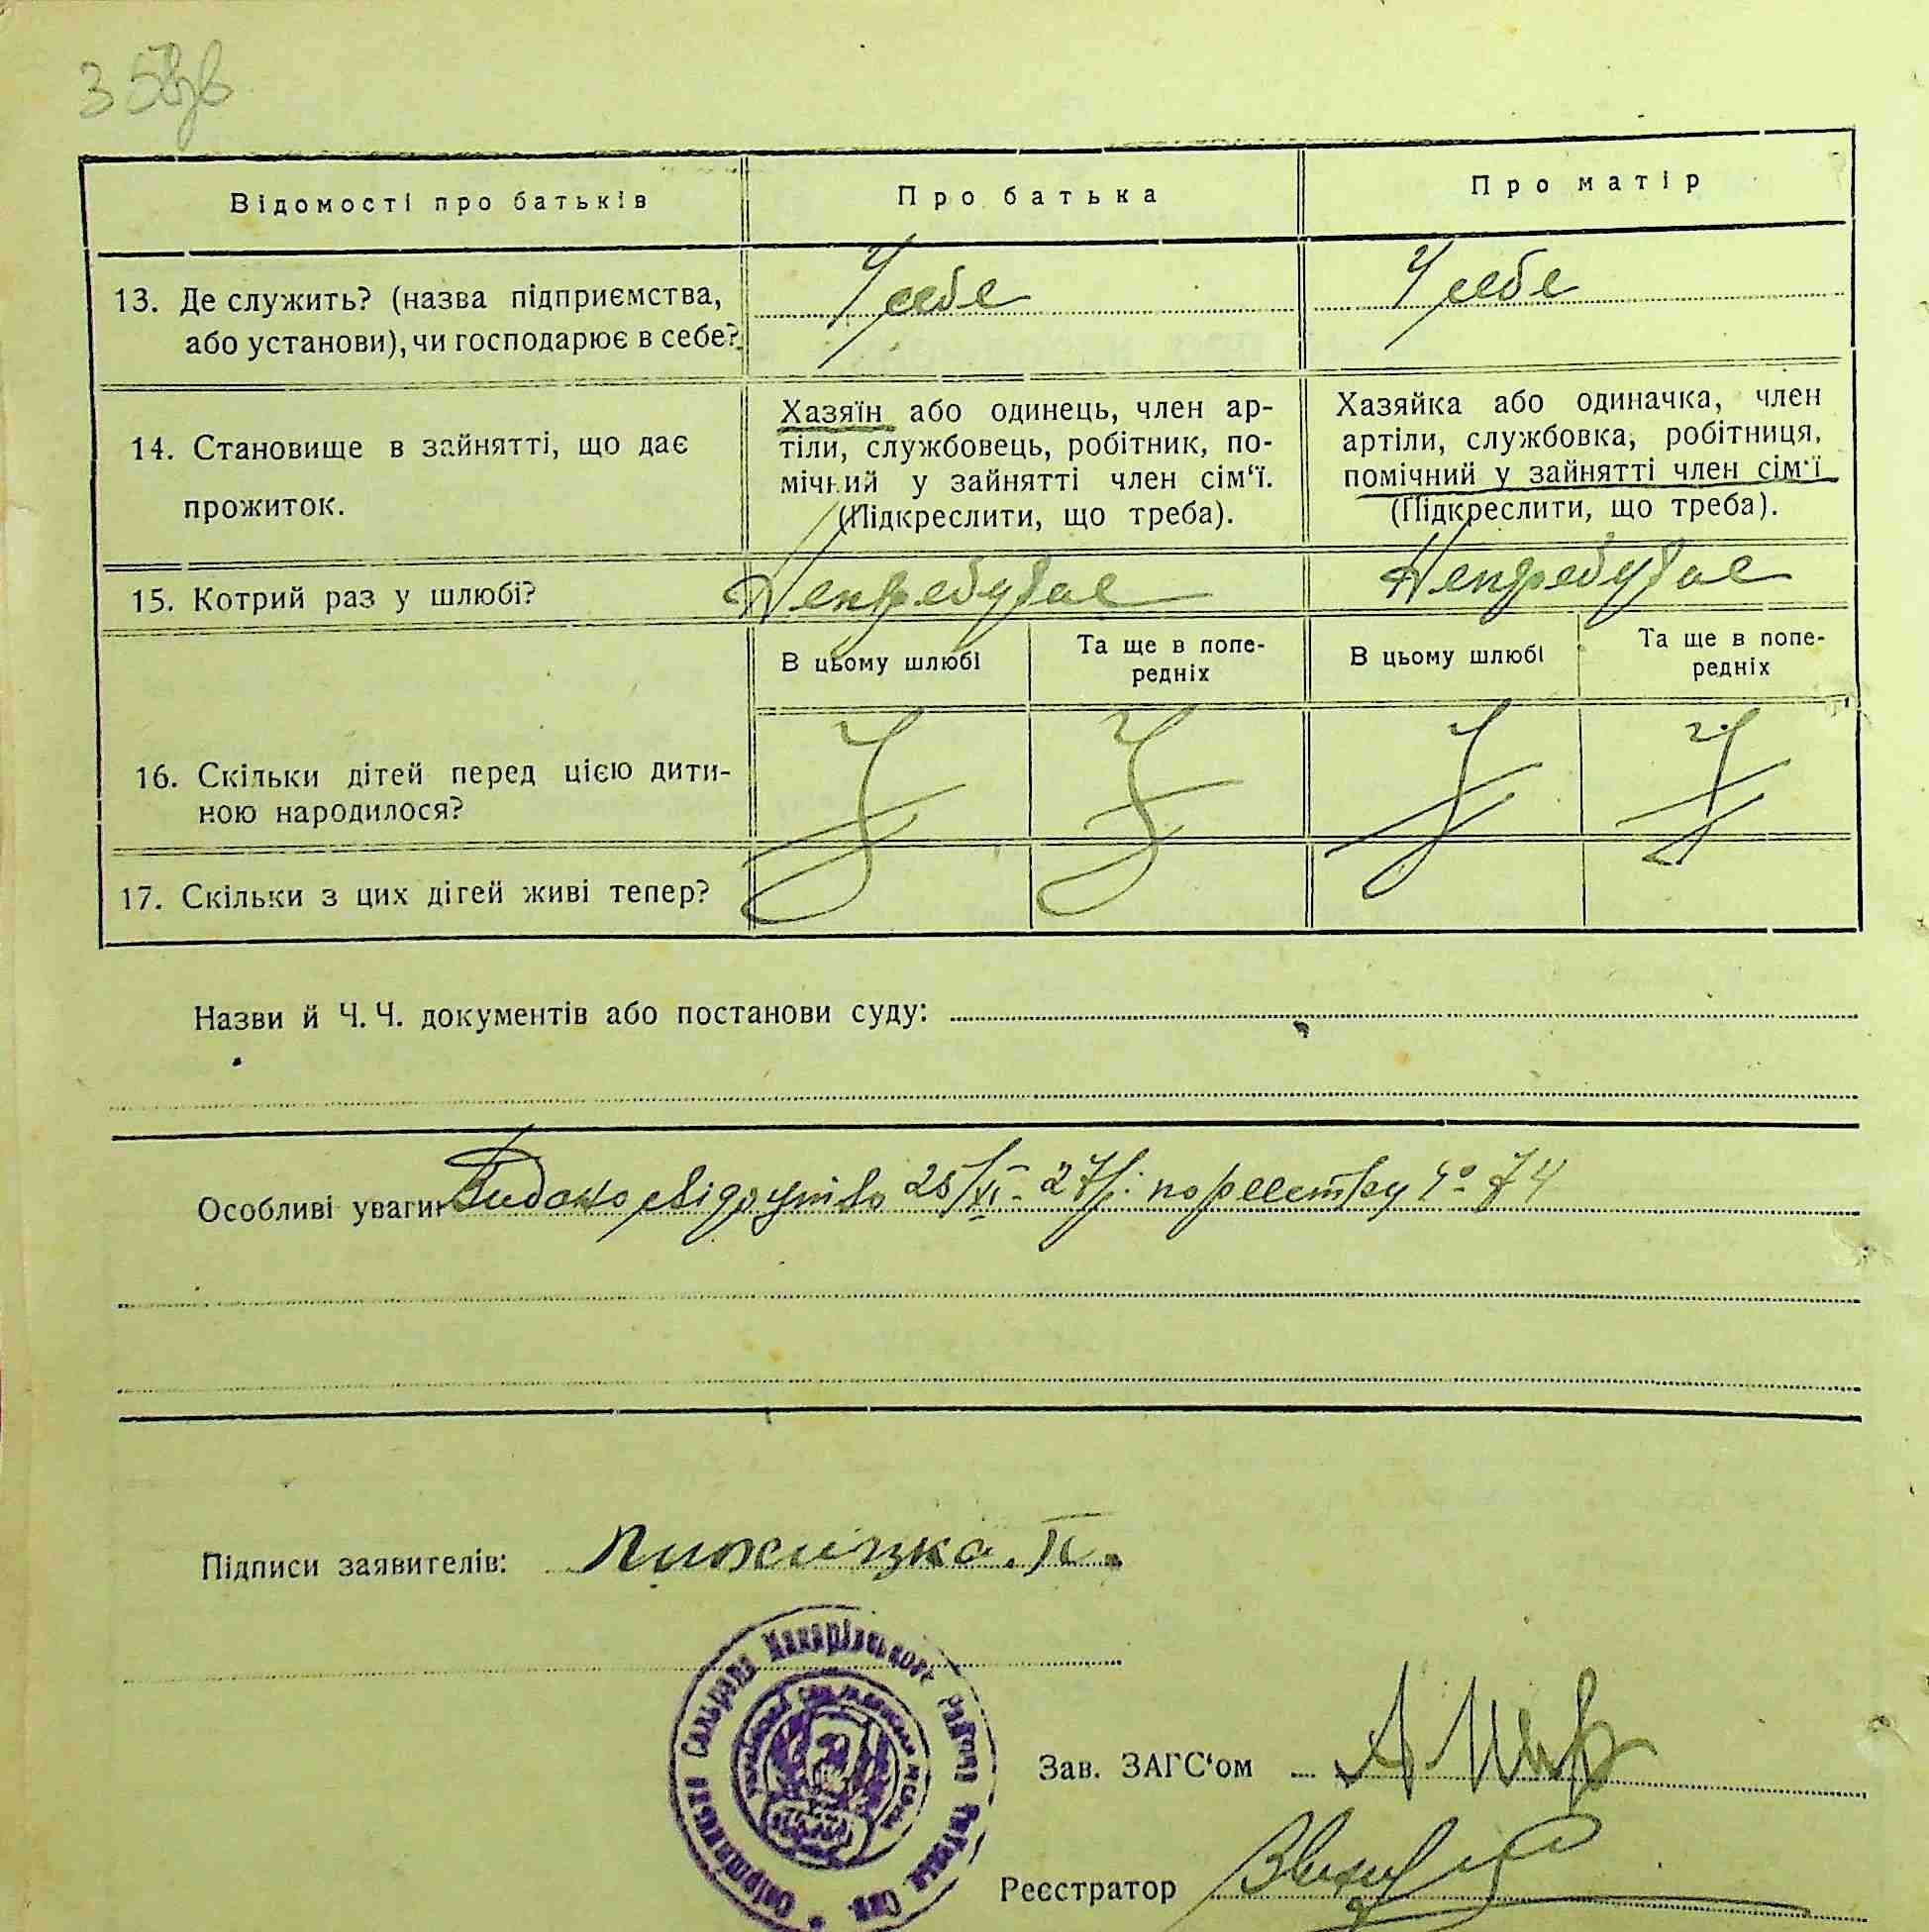 Відомості про батьків
Про батька
Про матір
13. Де служить? (назва підприємства,
або установи), чи господарює в себе?
У себе
У себе
14. Становище в зайнятті, що дає
прожиток.
Хазяїн або одинець, член ар-
тіли, службовець, робітник, по-
мічний у зайнятті член сім‘ї.
(Підкреслити, що треба).
Хазяйка або одиначка, член
артіли, службовка, робітниця,
помічний у зайнятті член сім‘ї
(Підкреслити, що треба).
15. Котрий раз у шлюбі?
Непребуває
Непребуває
В цьому шлюбі
Та ще в попе-
редніх
В цьому шлюбі
Та ще в попе-
редніх
16. Скільки дітей перед цією дити-
ною народилося?
17. Скільки з цих дітей живі тепер?
Назви й Ч. Ч. документів або постанови суду:
Особливі уваги: Видано свідоцтво 25/XI- 27р. по реестру № 74
Підписи заявителів:
Сельрада Макарівського Району
Зав. ЗАГС‘ом
Реєстратор